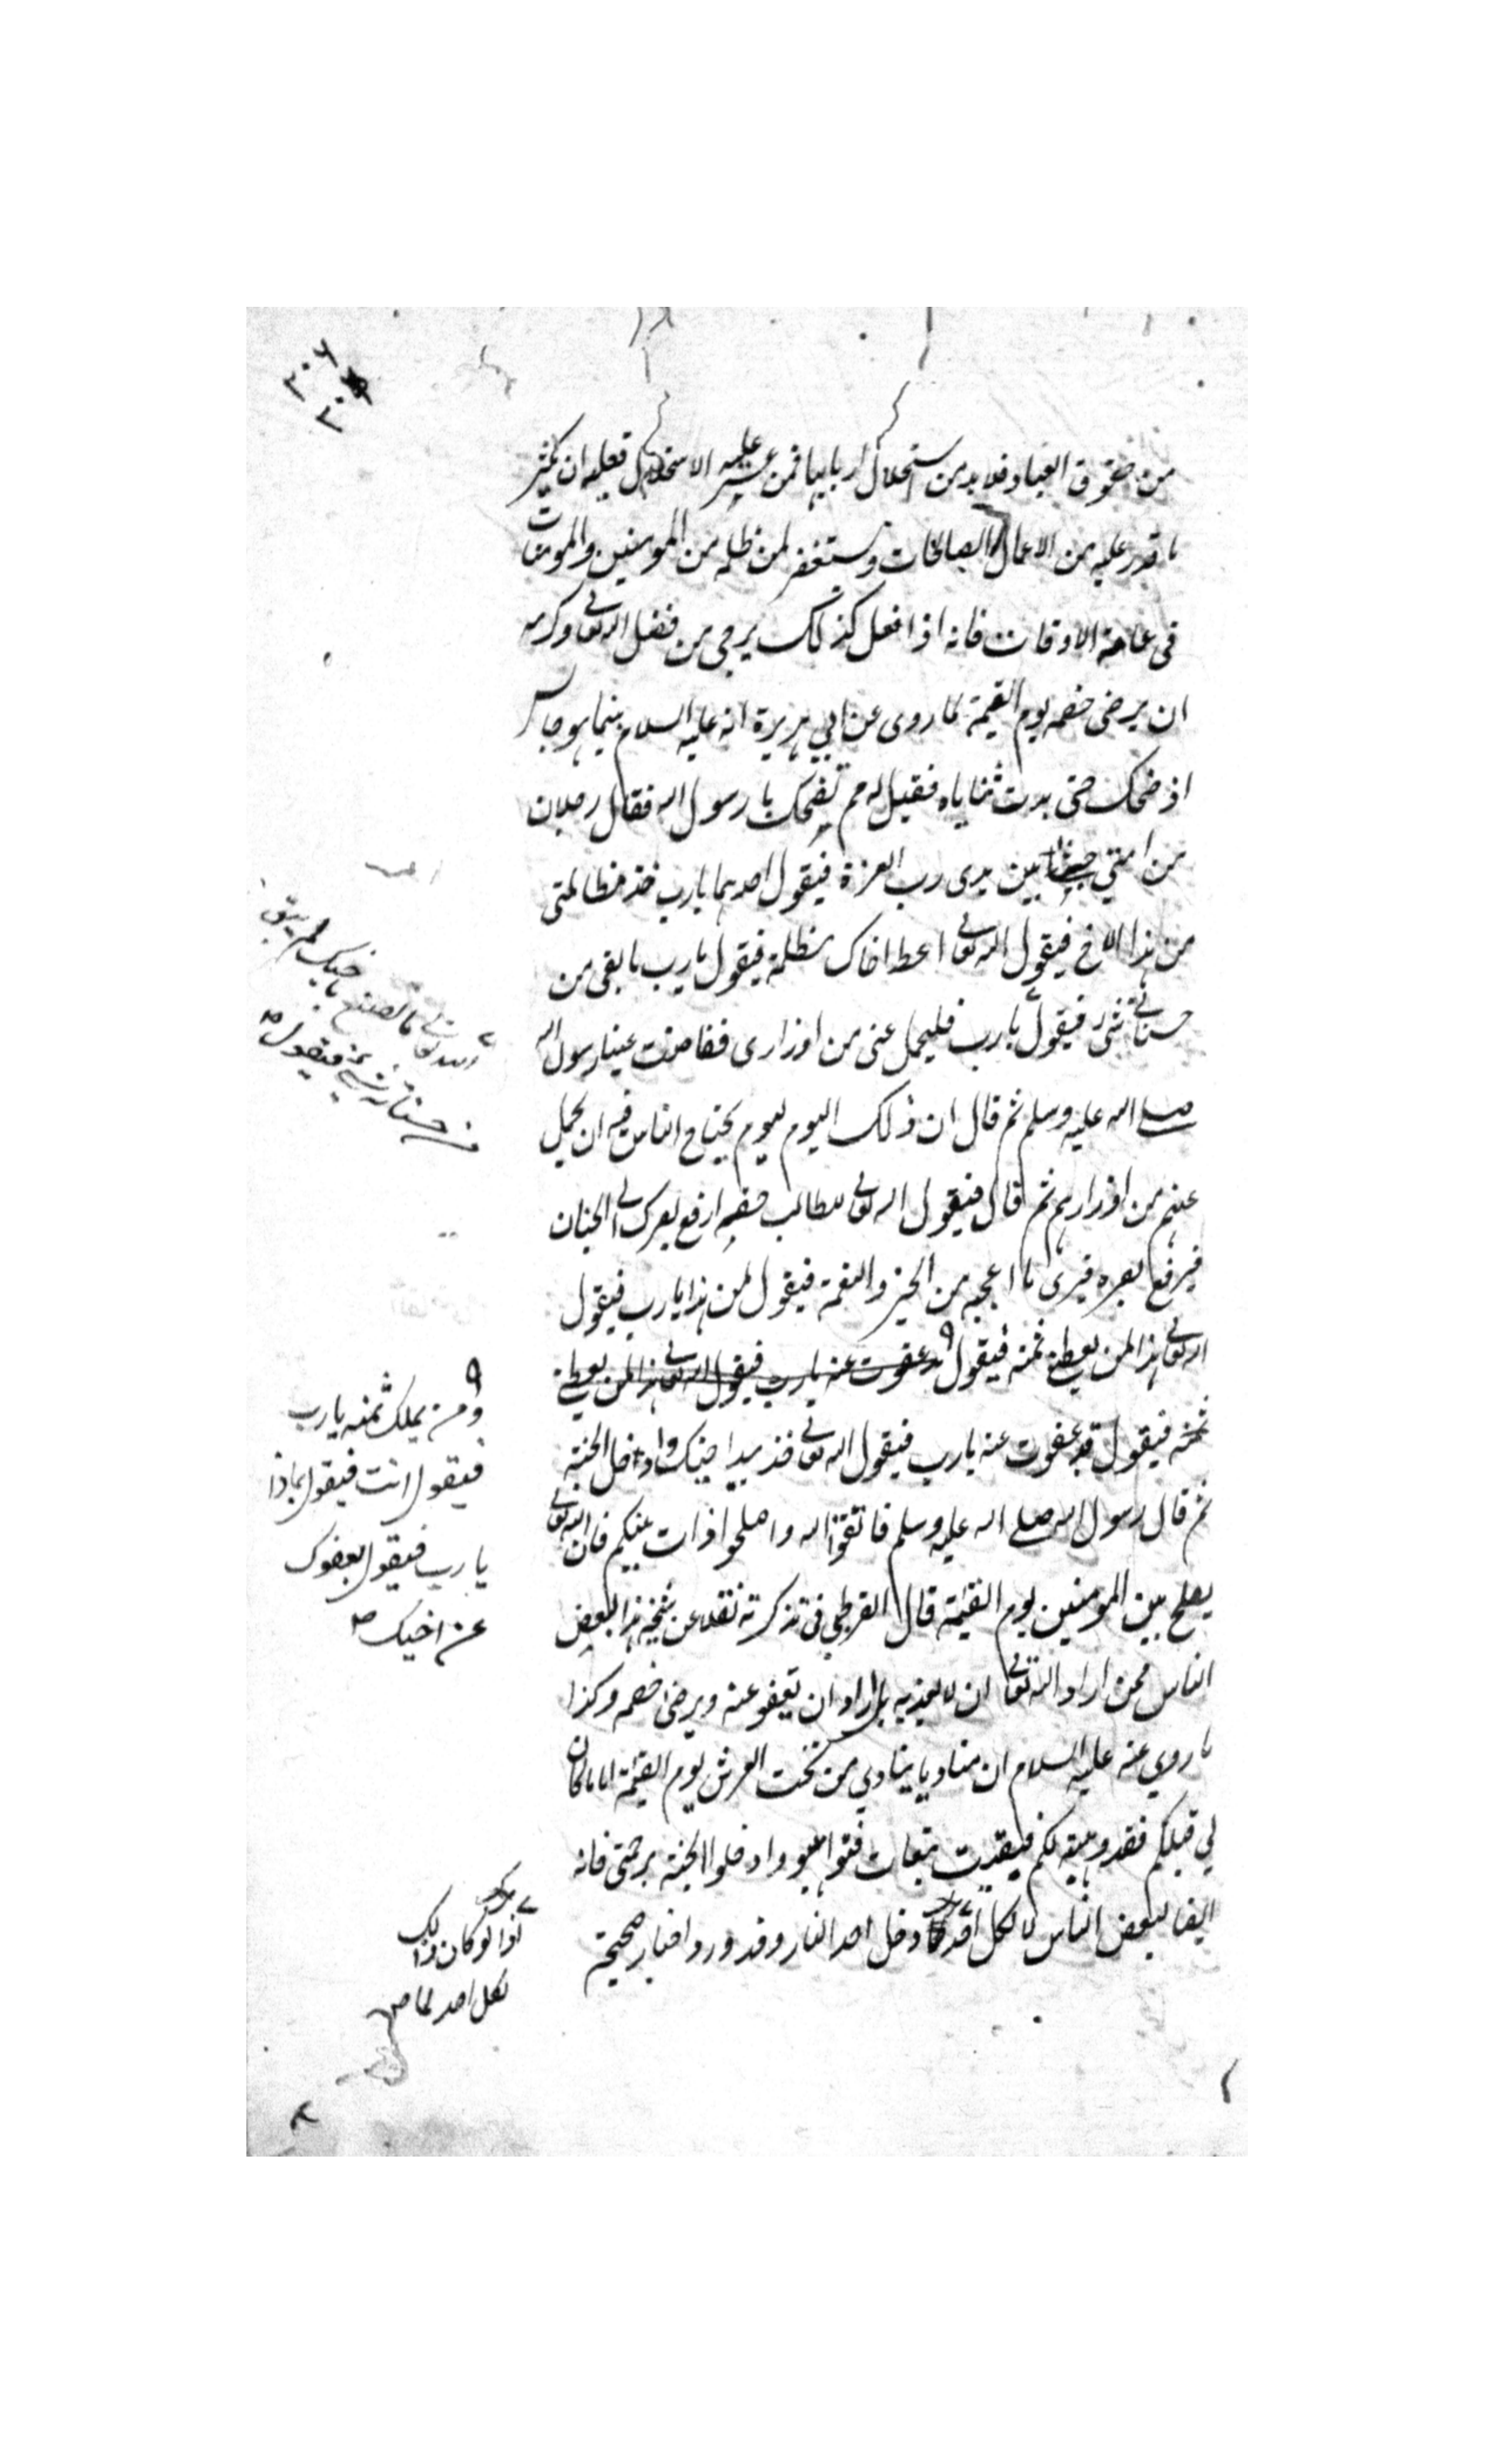 ٣٠٦
٣٠
من حقوق العباد فلا بد من استحلال اربابها فمن عسر عليه الاستحلال فعليه ان يكثر
ما قدر عليه من الاعمال الصالحات ويستغفر لمن ظلمه من المومنين والمومنات
فى عامة الاوقات فانه اذا فعل كذلك يرجى من فضل الله تعالى وكرمه
ان يرضى خصمه يوم القيمة لما روى عن ابي هريرة انه عليه السلام بينما هو جالس
اذ ضحك حتى بدت ثناياه فقيل له مم تضحك يا رسول الله فقال رجلان
من امتي جيئا بين يدى رب العزة فيقول احدهما يا رب خذ مظالمتى
من هذا الاخ فيقول الله تعالى اعط اخاك مظلمة فيقول يا رب ما بقى من
حسناتى شئ فيقول يا رب فليحمل عنى من اوزارى ففاضت عينا رسول الله
صلى الله عليه وسلم ثم قال ان ذلك اليوم ليوم يحتاج الناس فيه ان يحمل
عنهم من اوزارهم ثم قال فيقول الله تعالى للطالب حقه ارفع بصرك الى الجنان
فيرفع بصره فيرى ما اعجبه من الخير والنعمة فيقول لمن هذا يا رب فيقول
الله تعالى هذا لمن يعطى ثمنه فيقول قد عفوت عنه يا رب فيقول الله تعالى هذا لمن يعطى
ثمنه فيقول قد عفوت عنه يا رب فيقول الله تعالى فخذ بيد اخيك وادخل الجنة
ثم قال رسول الله صلى الله عليه وسلم فاتقوا الله واصلحوا ذات بينكم فان الله تعالى
يصلح بين المومنين يوم القيمة قال القرطبي فى تذكرته نقلا عن شيخه هذا لبعض
الناس ممن اراد الله تعالى ان لا يعذبه بل اراد ان يعفو عنه ويرضى خصمه وكذا
ما روي عنه عليه السلام ان مناديا ينادي من تحت العرش يوم القيمة اما ما كان
لي قبلكم فقد وهبته لكم فبقيت تبعات فتواهبو وادخلوا الجنة برحمتى فانه
ايضا لبعض الناس لا لكل احد دخل احد النار وقد ورد اخبار صحيحة
الله تعالى ما تصنع باخيك لم يبق
من حسناته شئ فيقول صح
ومن يملك ثمنه يا رب
فيقول انت فيقول بماذا
يا رب فيقول بعفوك
عن اخيك صح
اذ لو كان ذلك
لكل احد لما